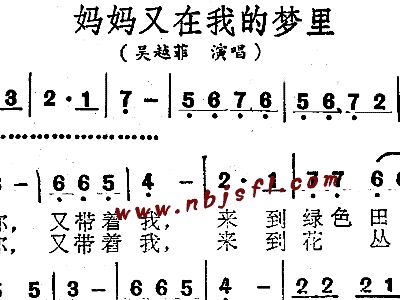 妈妈又在我的梦里
（吴越菲 演唱）
3 | 2 · 1 | 7 – | 5 6 7 6 | 5 6 7 2
– | 6 6 5 | 4 – | 2 · 1 | 7 7 6
www.nbjsfl.com
你， 又带着 我， 来 到 绿色 田
你， 又带着 我， 来 到 花 丛
5 5 | 3 – | 6 6 5 | 4 · 4 | 2 2 2 1